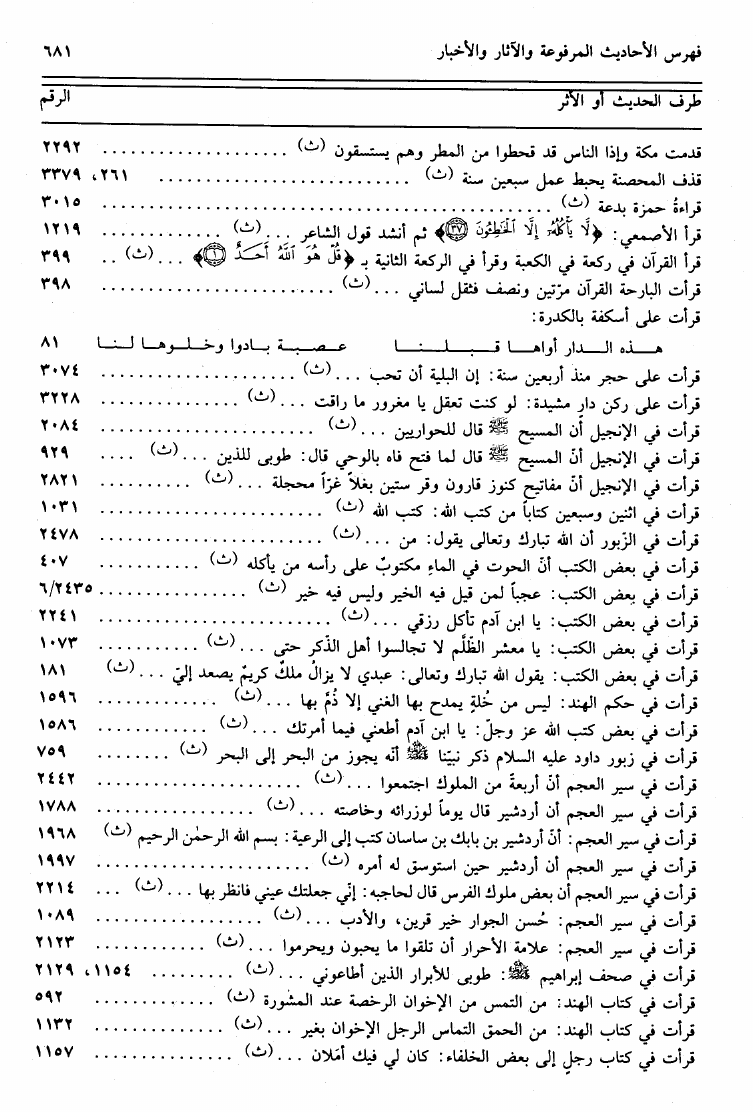 فهرس الأحاديث المرفوعة والآثار والأخبار ٦٨١
طرف الحديث أو الأثر الرقم
قدمت مكة وإذا الناس قد قحطوا من المطر وهم يستسقون (ث) .................... ٢٢٩٢
قذف المحصنة يحبط عمل سبعين سنة (ث) .......................... ٢٦١، ٣٣٧٩
قراءةُ حمزة بدعة (ث) .................................................. ٣٠١٥
قرأ الأصمعي: ﴿لَّا يَأْكُلُهُۥٓ إِلَّا ٱلْخَٰطِـُٔونَ ٣٧﴾ ثم أنشد قول الشاعر ...(ث) ............ ١٢١٩
قرأ القرآن في ركعة في الكعبة وقرأ في الركعة الثانية بـ ﴿قُلْ هُوَ ٱللَّهُ أَحَدٌ ١﴾ ...(ث) .. ٣٩٩
قرأت البارحة القرآن مرّتين ونصف فثقل لساني ...(ث) ......................... ٣٩٨
قرأت على أسكفة بالكدرة:
هـــذه الــدار أواهــا قــبــلــنــا عــصــبــة بــادوا وخــلــوهــا لــنــا ٨١
قرأت على حجر منذ أربعين سنة: إن البلية أن تحب ...(ث) ..................... ٣٠٧٤
قرأت على ركن دار مشيدة: لو كنت تعقل يا مغرور ما راقت ...(ث) .............. ٣٢٢٨
قرأت في الإنجيل أن المسيح ﷺ قال للحواريين ...(ث) ....................... ٢٠٨٤
قرأت في الإنجيل أنّ المسيح ﷺ قال لما فتح فاه بالوحي قال: طوبى للذين ...(ث) .... ٩٢٩
قرأت في الإنجيل أنّ مفاتيح كنوز قارون وقر ستين بغلاً غرّاً محجلة ...(ث) .......... ٢٨٢١
قرأت في اثنين وسبعين كتاباً من كتب الله: كتب الله (ث) ........................ ١٠٣١
قرأت في الزّبور أن الله تبارك وتعالى يقول: من ...(ث) ......................... ٢٤٧٨
قرأت في بعض الكتب أنّ الحوت في الماءِ مكتوبٌ على رأسه من يأكله (ث) ........... ٤٠٧
قرأت في بعض الكتب: عجباً لمن قيل فيه الخير وليس فيه خير (ث) ............... ٦/٢٤٣٥
قرأت في بعض الكتب: يا ابن آدم تأكل رزقي ...(ث) .......................... ٢٢٤١
قرأت في بعض الكتب: يا معشر الظّلَّم لا تجالسوا أهل الذّكر حتى ...(ث) ........... ١٠٧٣
قرأت في بعض الكتب: يقول الله تبارك وتعالى: عبدي لا يزالُ ملكٌ كريمٌ يصعد إليّ ...(ث) ١٨١
قرأت في حكم الهند: ليس من خُلةٍ يمدح بها الغني إلا ذُمَّ بها ...(ث) ............. ١٥٩٦
قرأت في بعض كتب الله عز وجلّ: يا ابن آدم أطعني فيما أمرتك ...(ث) ............ ١٥٨٦
قرأت في زبور داود عليه السلام ذكر نبيّنا ﷺ أنّه يجوز من البحر إلى البحر (ث) ........ ٧٥٩
قرأت في سير العجم أنّ أربعةً من الملوك اجتمعوا ...(ث) ....................... ٢٤٤٢
قرأت في سير العجم أن أردشير قال يوماً لوزرائه وخاصته ...(ث) .................. ١٧٨٨
قرأت في سير العجم: أنّ أردشير بن بابك بن ساسان كتب إلى الرعية: بسم الله الرحمٰن الرحيم (ث) ١٩٦٨
قرأت في سير العجم أن أردشير حين استوسق له أمره (ث) ....................... ١٩٩٧
قرأت في سير العجم أن بعض ملوك الفرس قال لحاجبه: إنّي جعلتك عيني فانظر بها ...(ث) ... ٢٢١٤
قرأت في سير العجم: حُسن الجوار خير قرين، والأدب ...(ث) ................... ١٠٨٩
قرأت في سير العجم: علامة الأحرار أن تلقوا ما يحبون ويحرموا ...(ث) ............. ٢١٢٣
قرأت في صحف إبراهيم ﷺ: طوبى للأبرار الذين أطاعوني ...(ث) ......... ١١٥٤، ٢١٢٩
قرأت في كتاب الهند: من التمس من الإخوان الرخصة عند المشورة (ث) ............. ٥٩٢
قرأت في كتاب الهند: من الحمق التماس الرجل الإخوان بغير ...(ث) .............. ١١٣٢
قرأت في كتاب رجلٍ إلى بعض الخلفاء: كان لي فيك أمَلان ...(ث) ............... ١١٥٧